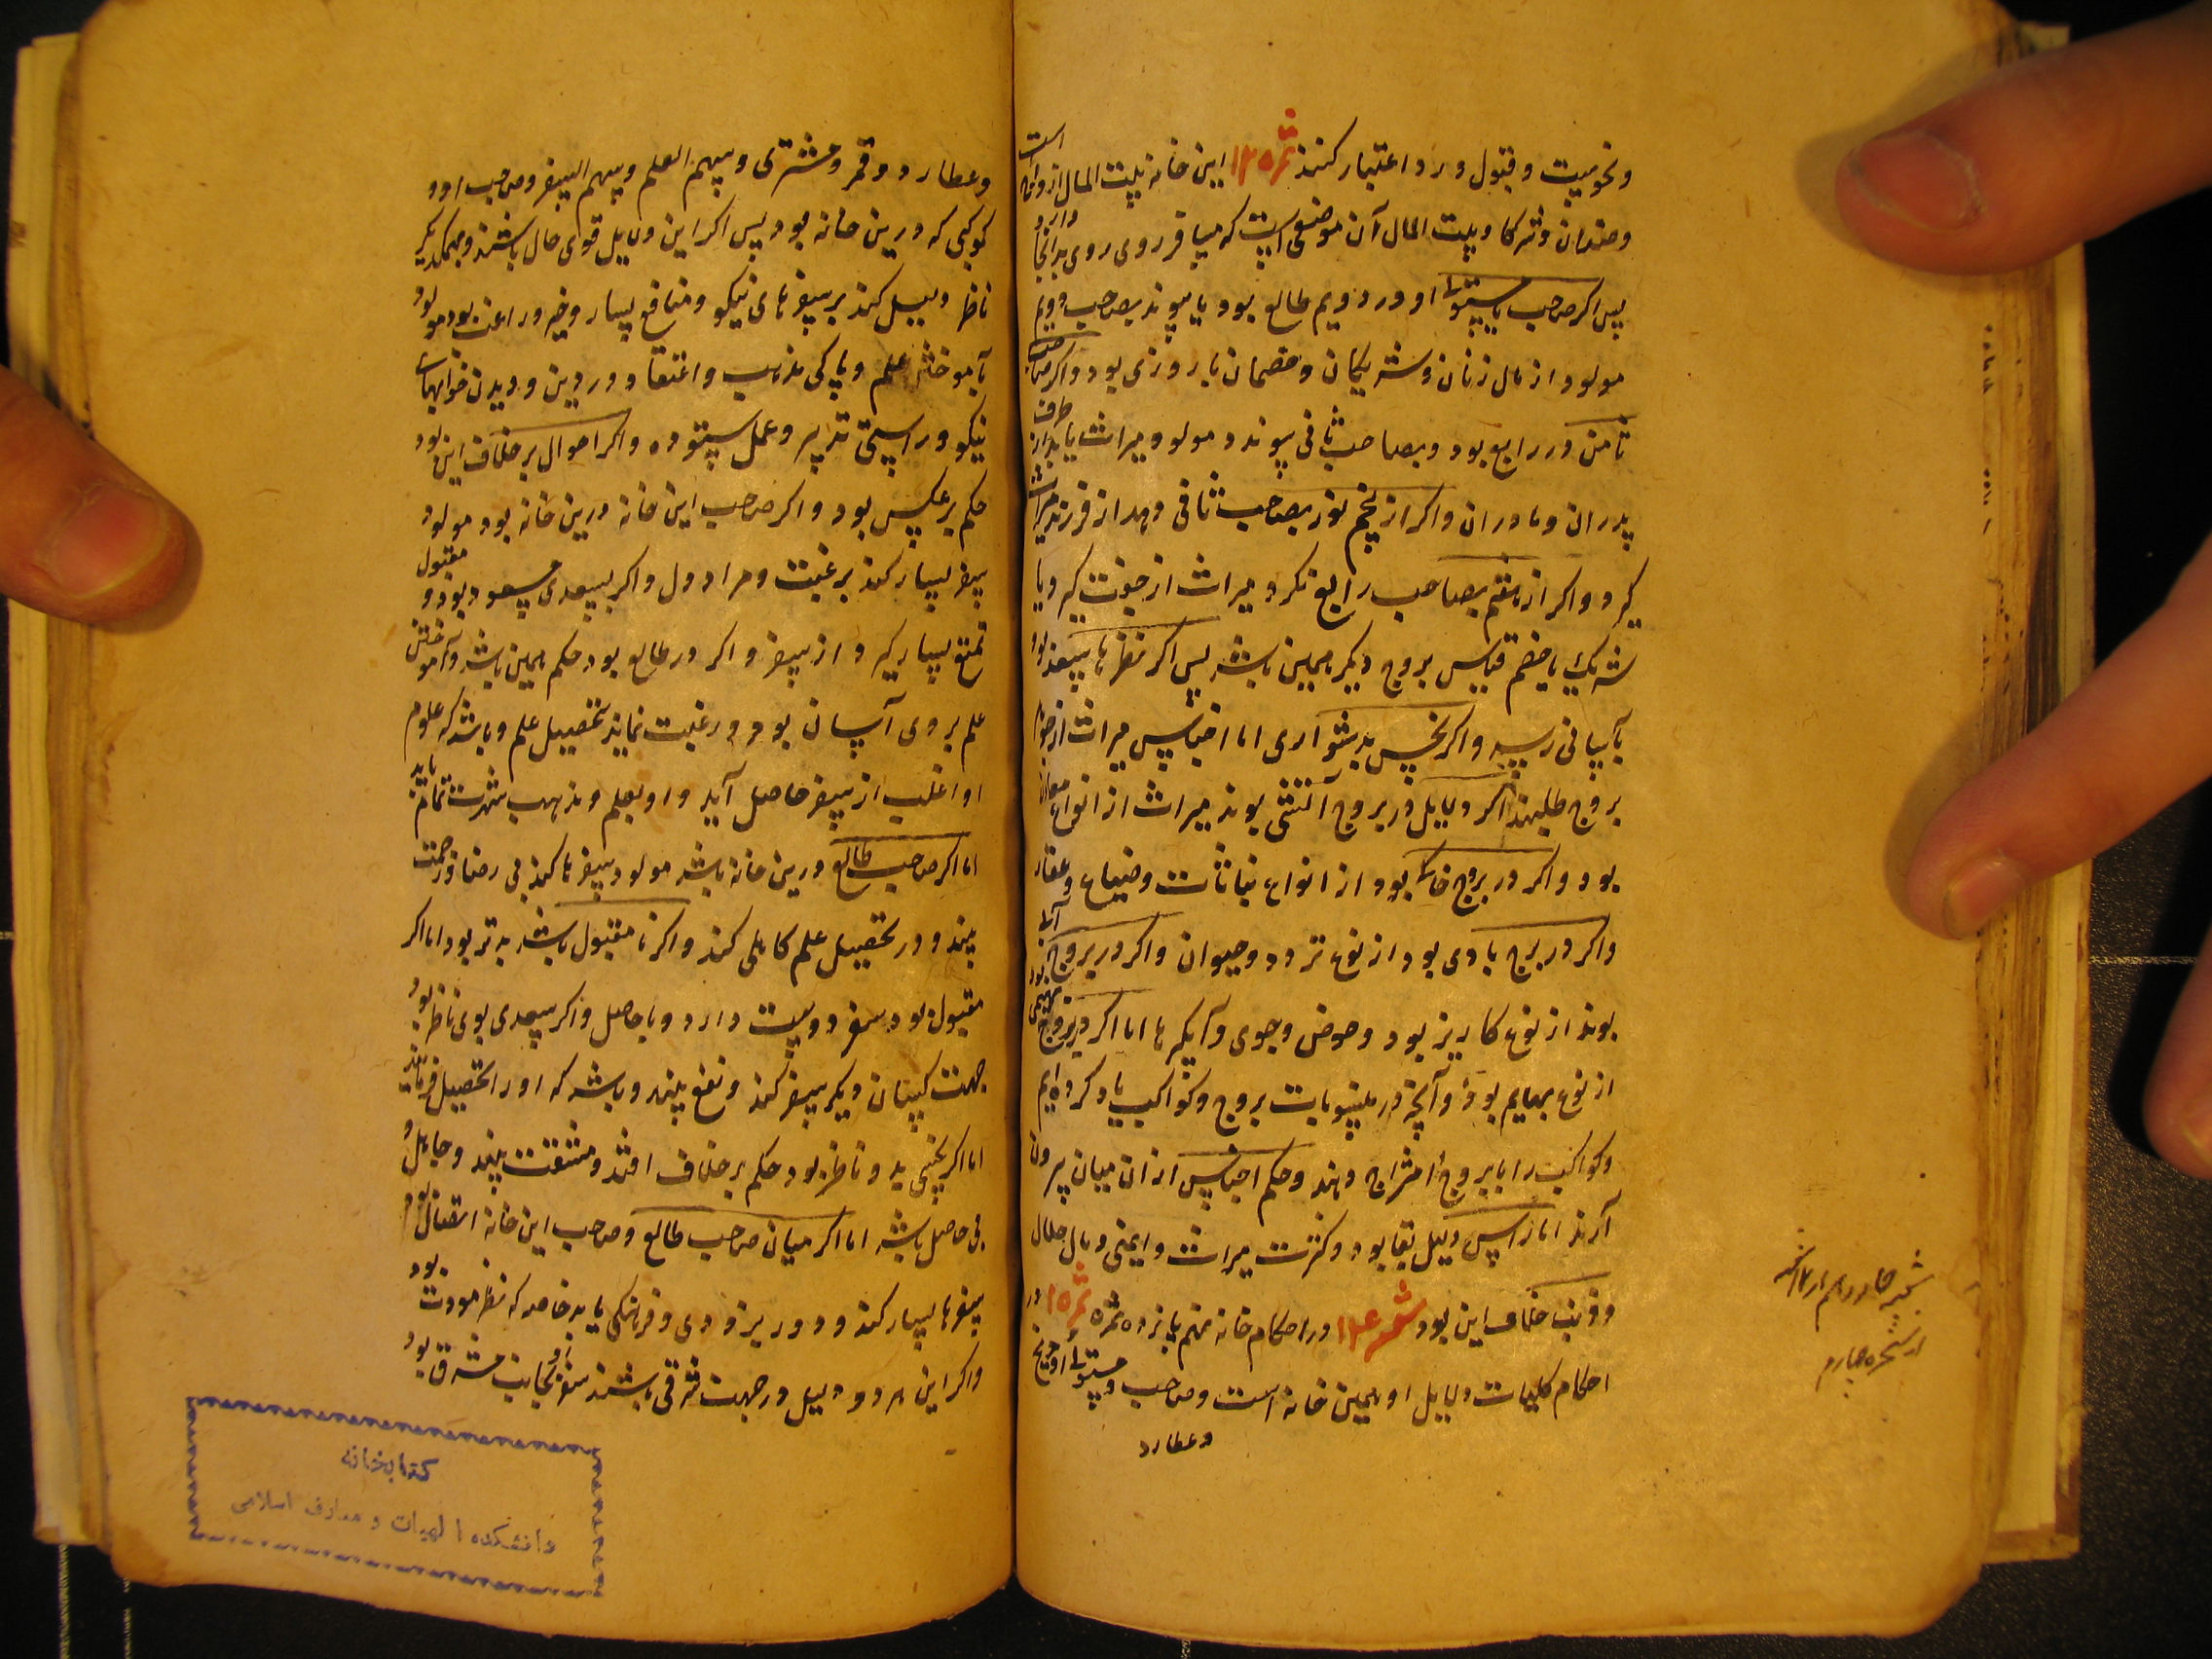 ونحوست وقبول ورد اعتبار کنند ثمره ۱۳ این خانه بیت المال ازواج است
وضدان وشرکا وبیت المال آن موضعی است که مسافر روی بدانجا دارد
پس اگر صاحب یا مستولی او در دویم طالع بود یا پیوند بصاحب دویم
مولود از مال زنان وشریکان وخصمان با روزی بود واگر صاحب
ثامن در رابع بود وبصاحب ثانی پیوندد مولود میراث یابد از طرف
پدران ومادران واگر از پنجم نور بصاحب ثانی دهد از فرزند میراث
گیرد واگر از هفتم بصاحب رابع نگرد میراث از جفت گیرد یا
شریک یا خصم قیاس بروج دیگر همین باشد پس اگر نظرها سعد بود
بآسانی رسد واگر نحس بدشواری اما اجناس میراث از
بروج طلبند اگر دلایل در بروج آتشی بوند میراث از انواع معادن
بود واگر در بروج خاکی بود از انواع نباتات وضیاع وعقار
واگر در برج بادی بود از نوع تردد وحیوان واگر در بروج آبی
بوند از نوع کاریز بود وحوض وجوی وآبگیرها اما اگر در بروج بهیمی بود
از نوع بهایم بود وآنچه در منسوبات بروج وکواکب یاد کرده ایم
وکواکب را با بروج امتزاج دهند وحکم اجناس از آن میان بیرون
آرند اما راس دلیل بقا بود وکثرت میراث وایمنی ومال حلال
وذنب خلاف این بود شجره ۱۴ در احکام خانه نهم پانزده ثمره ثمره ۱ در
احکام کلیات دلایل او همین خانه است وصاحب ومستولی او ومریخ
وعطارد
از شجره چهارم
وعطارد وقمر ومشتری وسهم العلم وسهم السفر وصاحب او و
کوکبی که درین خانه بود پس اگر این دلایل قوی حال باشند وبیکدیگر
ناظر دلیل کند بر سفرهای نیکو ومنافع بسیار وخیر وراغب بود مولود
بآموختن علم وپاکی مذهب واعتقاد در دین ودیدن خوابهای
نیکو وراستی تدبیر وعمل ستوده واگر احوال بر خلاف این بود
حکم برعکس بود واگر صاحب این خانه درین خانه بود مولود
سفر بسیار کند برغبت ومراد دل واگر بسعدی مسعود بود ومقبول
تمتع بسیار گیرد از سفر واگر در طالع بود حکم همین باشد وآموختن
علم بر وی آسان بود ورغبت نماید بتحصیل علم وباشد که علوم
او اغلب از سفر حاصل آید واو بعلم ومذهب شهرت تمام یابد
اما اگر صاحب طالع درین خانه باشد مولود سفرها کند بی رضا وزحمت
بیند ودر تحصیل علم کاهلی کند واگر نامقبول باشد بدتر بود اما اگر
مقبول بود سفر دوست دارد وبا حاصل واگر سعدی بوی ناظر بود
جهت کسان دیگر سفر کند ونفع بیند وباشد که او را بتحصیل فرمایند
اما اگر نحسی بدو ناظر بود حکم بر خلاف افتد ومشقت بیند وجاهل و
بی حاصل باشد اما اگر میان صاحب طالع وصاحب این خانه اتصال بود
سفرها بسیار کند ودوربین ودی وفرهنگی باید خاصه که نظر مودت بود
واگر این هر دو دلیل در جهت شرقی باشند سفر او بجانب مشرق بود
کتابخانه
دانشکده الهیات و معارف اسلامی